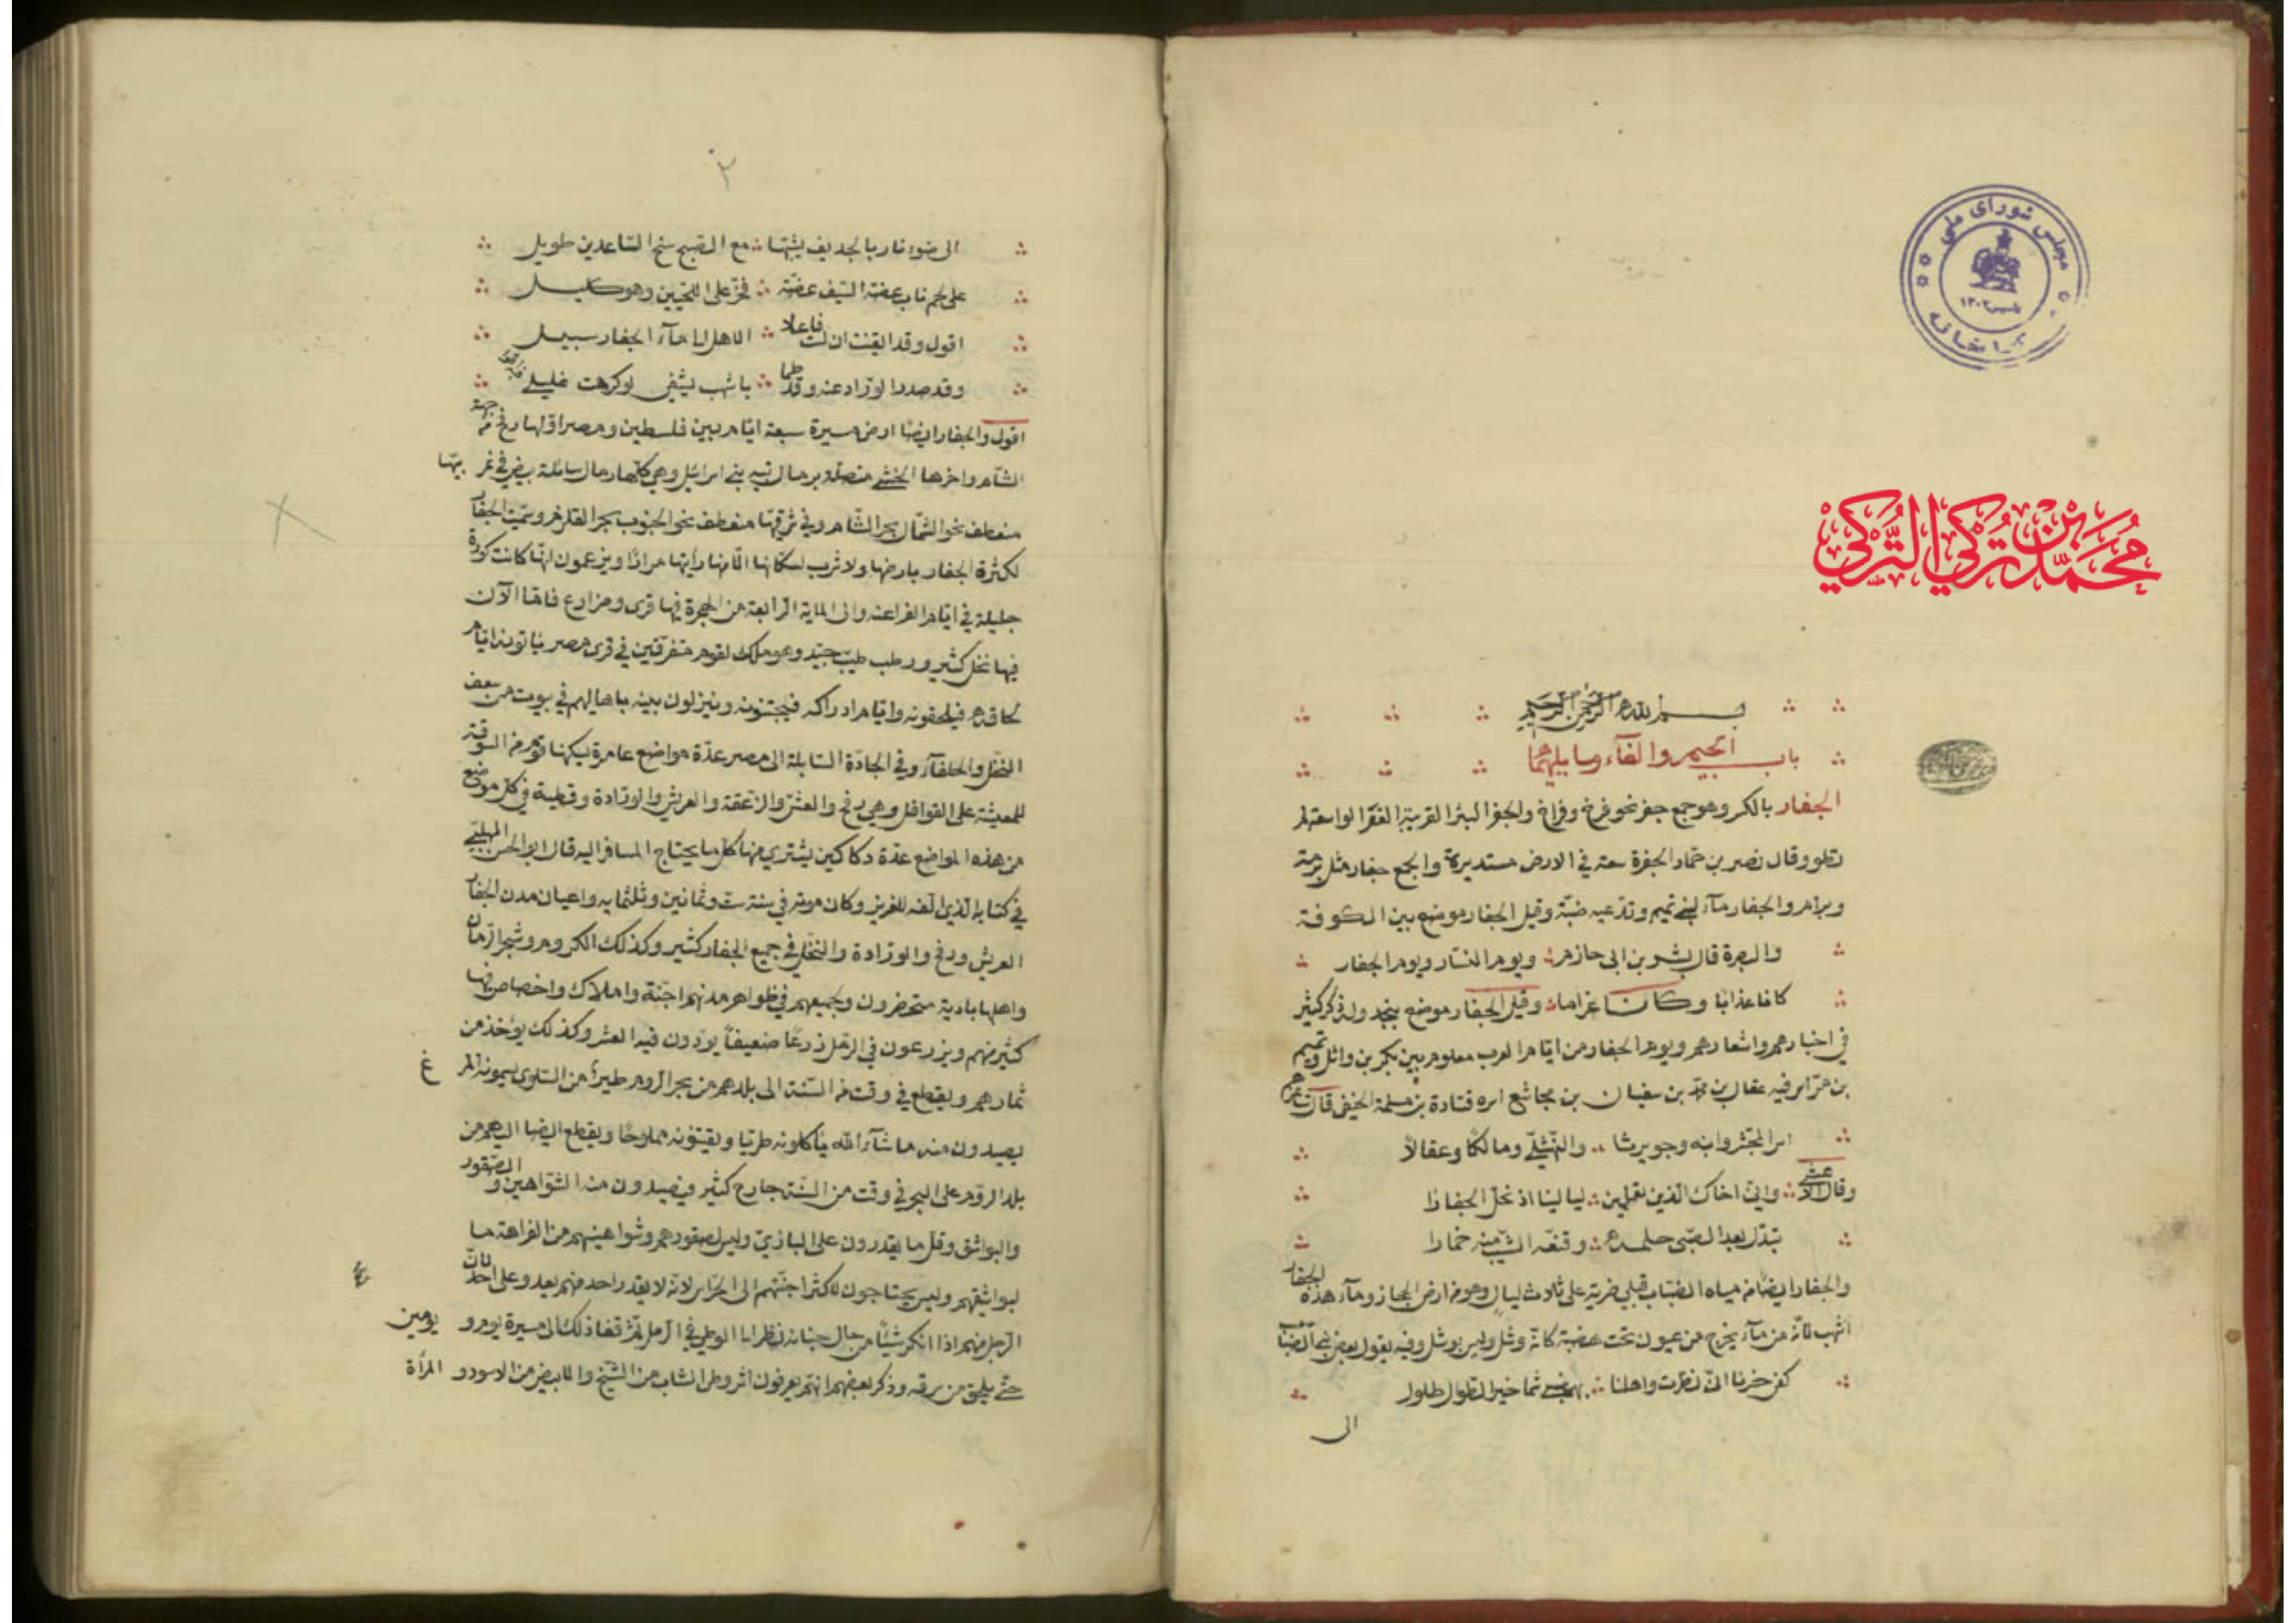 مجلس شورای ملی
کتابخانه
محمد بن تركي التركي
بسم الله الرحمن الرحيم
باب الجيم والفاء وما يليهما
الجفار بالكسر وهو جمع جفر نحو فرخ وفراخ والجفر البئر القريبة القعر الواسعة لم
تطو وقال نصر بن حماد الجفرة سعة في الارض مستديرة والجمع جفار مثل برمة
وبرام والجفار مآء لبني تميم وتدعيه ضبة وقيل الجفار موضع بين الكوفة
والبصرة قال بشر بن ابي حازم ويوم النسار ويوم الجفار
كانا عذابا وكانا غراما وقيل الجفار موضع بنجد وله ذكر كثير
في اخبارهم واشعارهم ويوم الجفار من ايام العرب معلوم بين بكر بن وائل وتميم
بن مر اسر فيه عقال بن محمد بن سفيان بن مجاشع اسره قتادة بن مسلمة الحنفي قال شاعرهم
اسر المجشر وابنه وحويرثا والنهشلي ومالكا وعقالا
وقال الاعشى وان اخاك الذين تعلمين ليالينا اذ نحل الجفارا
تبدل بعد الصبى حلمه وقنعه الشيب منه خمارا
والجفار ايضا من مياه الضباب قبلي ضرية على ثلاث ليال وهو من ارض الحجاز ومآء هذه الجفار
اشهب لانه من مآء يخرج من عيون تحت هضبة كانه وشل وليس بوشل وفيه يقول بعض بني الضباب
كفى حزنا اني نظرت واهلنا بهضبي شماخير الطوال طلول
الى
٢
الى ضوء نار بالحديف يشبها مع الصبح سنح الساعدين طويل
على لحم ناب عضه السيف عضة فخر على اللحيين وهو كليل
اقول وقد ايقنت ان لست فاعلا الا هل الى مآء الجفار سبيل
وقد صدر الوراد عنه وقد طما باشهب يشفي لو كرهت غليلي
اقول والجفار ايضا ارض مسيرة سبعة ايام بين فلسطين ومصر اولها رفح من جهة
الشام واخرها الخشبي متصلة برمال تيه بني اسرائيل وهي كلها رمال سائلة بيض في غربيها
منعطف نحو الشمال بحر الشام وفي شرقيها منعطف نحو الجنوب بحر القلزم وسميت الجفار
لكثرة الجفار بارضها ولا شرب لسكانها الا منها رايتها مرارا ويزعمون انها كانت كورة
جليلة في ايام الفراعنه والى الماية الرابعة من الهجرة فيها قرى ومزارع فاما الآن
فيها نخل كثير ورطب طيب جيد وهو ملك لقوم متفرقين في قرى مصر ياتونه ايام
لحاقه فيلحقونه وايام ادراكه فيجتنونه وينزلون بينه باهاليهم في بيوت من سعف
النخل والحلفآء وفي الجادة السابلة الى مصر عدة مواضع عامرة يسكنها قوم من السوقة
للمعيشة على القوافل وهي رفح والعش والزعقة والعريش والورادة وقطية في كل موضع
من هذه المواضع عدة دكاكين يشتري منها كل ما يحتاج المسافر اليه قال ابو الحسن المهلبي
في كتابه الذي الفه للعزيز وكان موته في سنة ست وثمانين وثلثمايه واعيان مدن الجفار
العريش ورفح والورادة والنخل في جميع الجفار كثير وكذلك الكروم وشجر الرمان
واهلها بادية متحضرون ولجميعهم في ظواهر مدنهم اجنة واملاك واخصاص فيها
كثير منهم ويزرعون في الرمل زرعا ضعيفا يؤدون فيه العشر وكذلك يؤخذ من
ثمارهم ويقطع في وقت من السنة الى بلدهم من بحر الروم طير من السلوى يسمونه المر غ
يصيدون منه ما شآء الله ياكلونه طريا ويقتنونه مملوحا ويقطع ايضا اليهم من
بلد الروم على البحر في وقت من السنة جارح كثير فيصيدون منه الشواهين والصقور
والبواشق وقل ما يقدرون على البازي وليس لصقورهم وشواهينهم من الفراهة ما
لبواشيقهم وليس يحتاجون لكثر اجنتهم الى الحراس لانه لا يقدر احد منهم يعدو على احد لان
الرجل منهم اذا انكر شيئا من حال جنانه نظر الى الوطي في الرمل ثم قفا ذلك الى مسيرة يوم و يومين
حتى يلحق من سرقه وذكر بعضهم انهم يعرفون اثر وطى الشاب من الشيخ والابيض من الاسود و المرأة